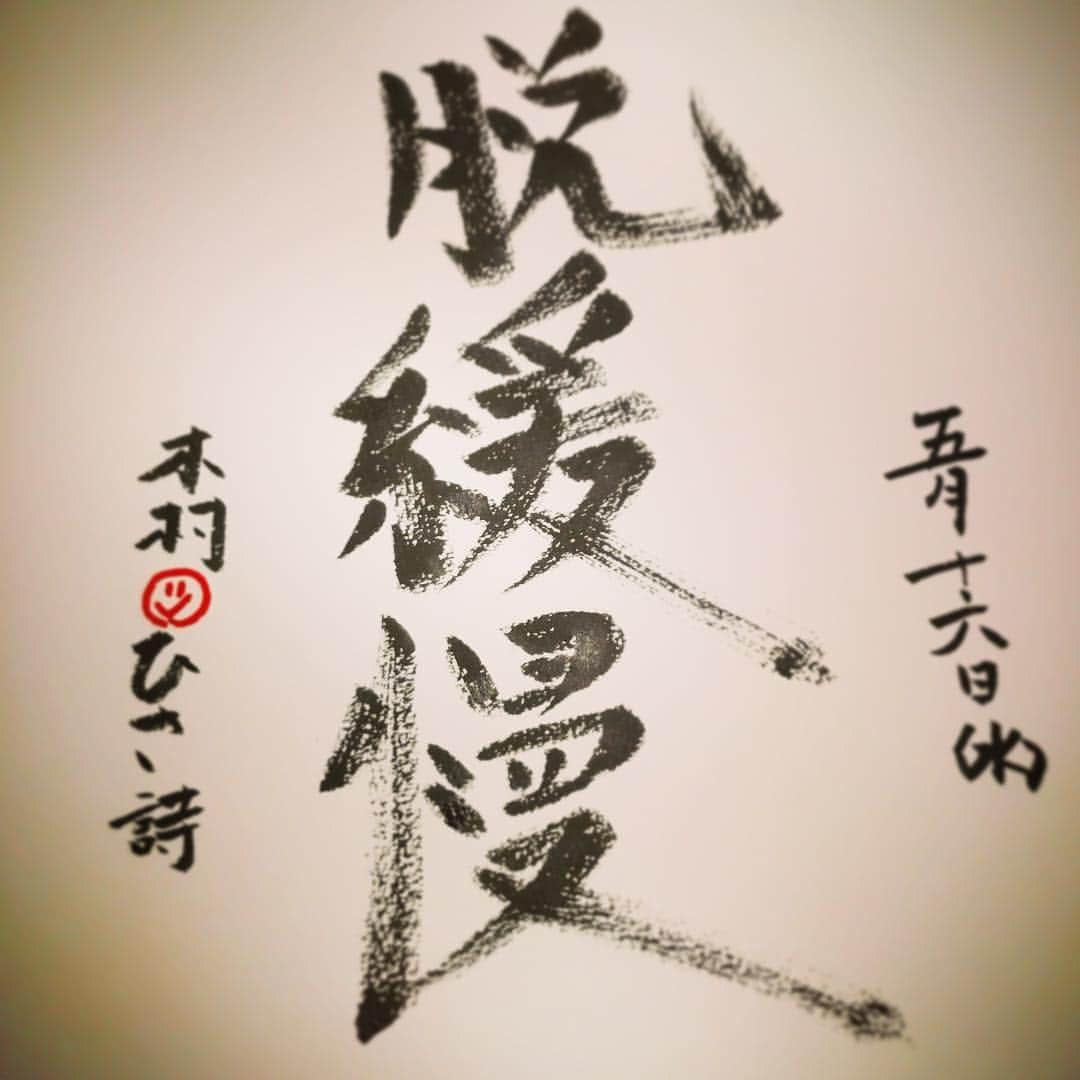 五月十六日
脱緩慢
木羽ひさ詩